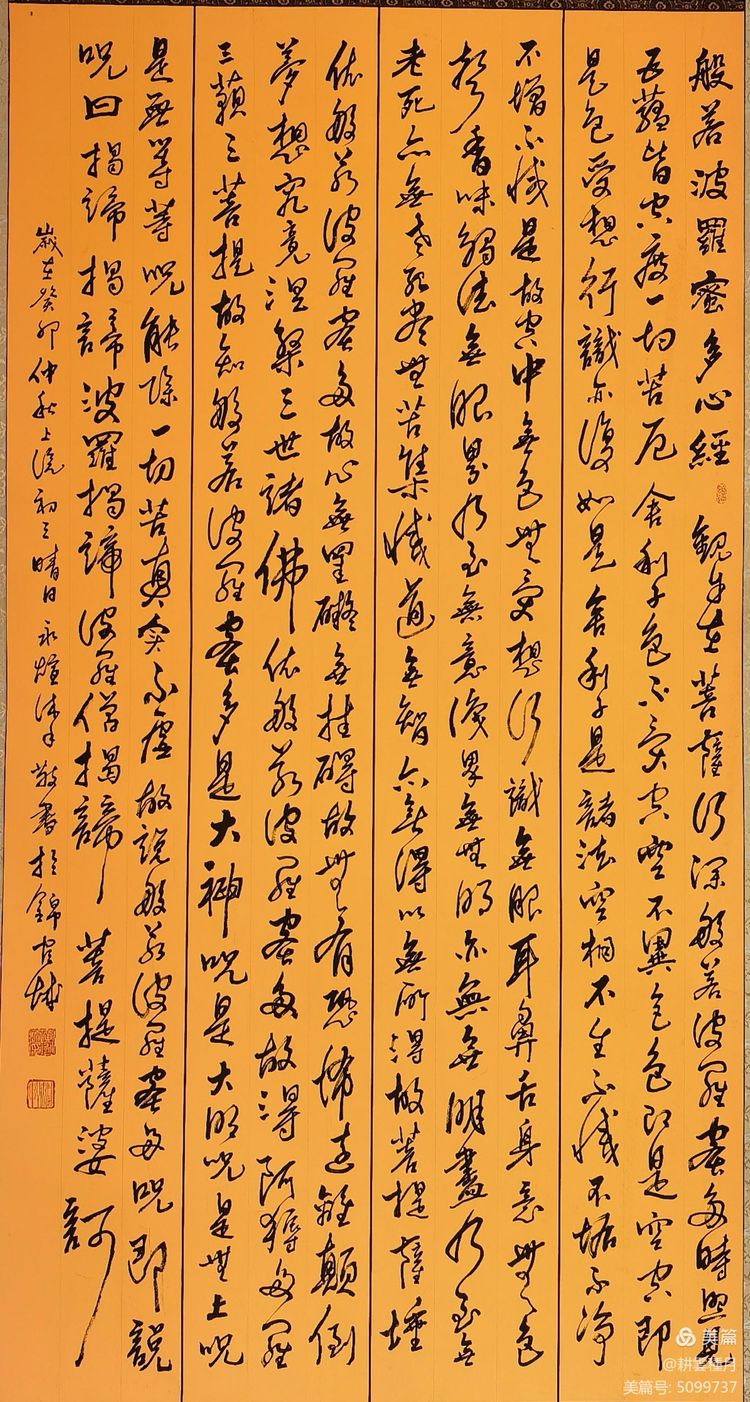 般若波羅蜜多心經 觀自在菩薩行深般若波羅蜜多時照見
五蘊皆空度一切苦厄舍利子色不異空空不異色色即是空空即
是色受想行識亦復如是舍利子是諸法空相不生不滅不垢不淨
不增不減是故空中無色無受想行識無眼耳鼻舌身意無色
聲香味觸法無眼界乃至無意識界無無明亦無無明盡乃至無
老死亦無老死盡無苦集滅道無智亦無得以無所得故菩提薩埵
依般若波羅蜜多故心無罣礙無挂碍故無有恐怖遠離顛倒
夢想究竟涅槃三世諸佛依般若波羅蜜多故得阿耨多羅
三藐三菩提故知般若波羅蜜多是大神呪是大明呪是無上呪
是無等等呪能除一切苦真實不虛故說般若波羅蜜多呪即說
呪曰揭諦揭諦波羅揭諦波羅僧揭諦菩提薩婆訶
歲在癸卯仲秋上浣初三晴日永煊沐手敬書於錦官城
美篇
@耕雲種月
美篇号: 5099737